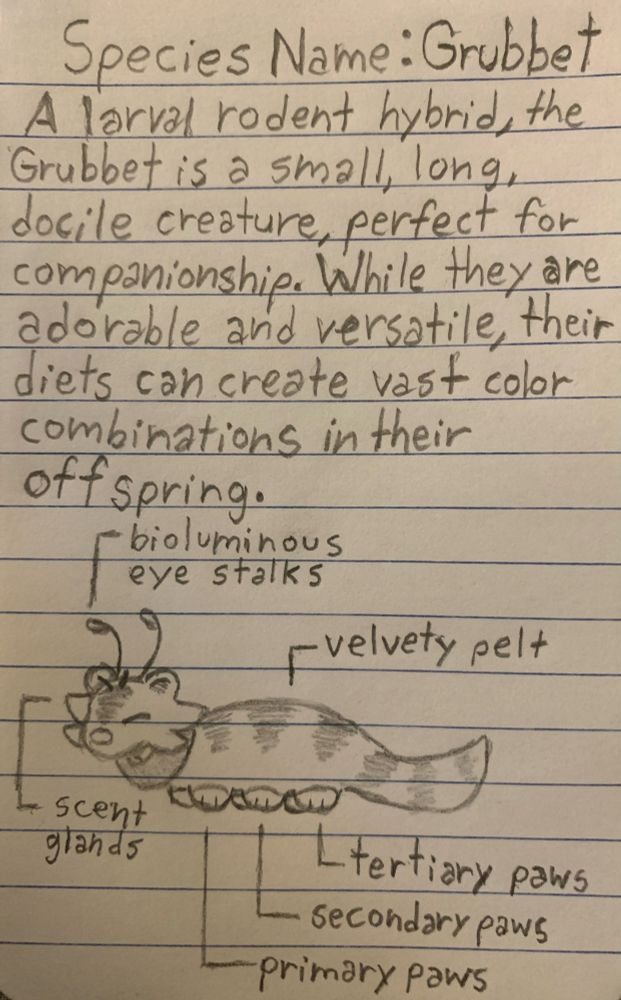 Species Name: Grubbet
A larval rodent hybrid, the
Grubbet is a small, long,
docile creature, perfect for
companionship. While they are
adorable and versatile, their
diets can create vast color
combinations in their
offspring.
bioluminous
eye stalks
velvety pelt
scent
glands
tertiary paws
secondary paws
primary paws